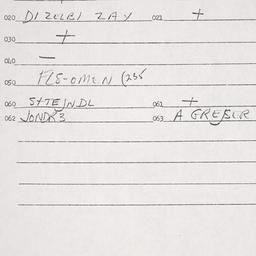 020 DIZELBI ZAY 021 +
030 +
040 —
050 FLS-OMEN (235
060 STTEINDL 061 +
062 JONDR3 063 A GREßER